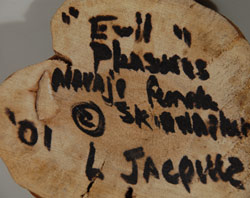 " Evil "
Pleasures
NAVAJO
'01 © SKINWALKER
L JACQUEZ